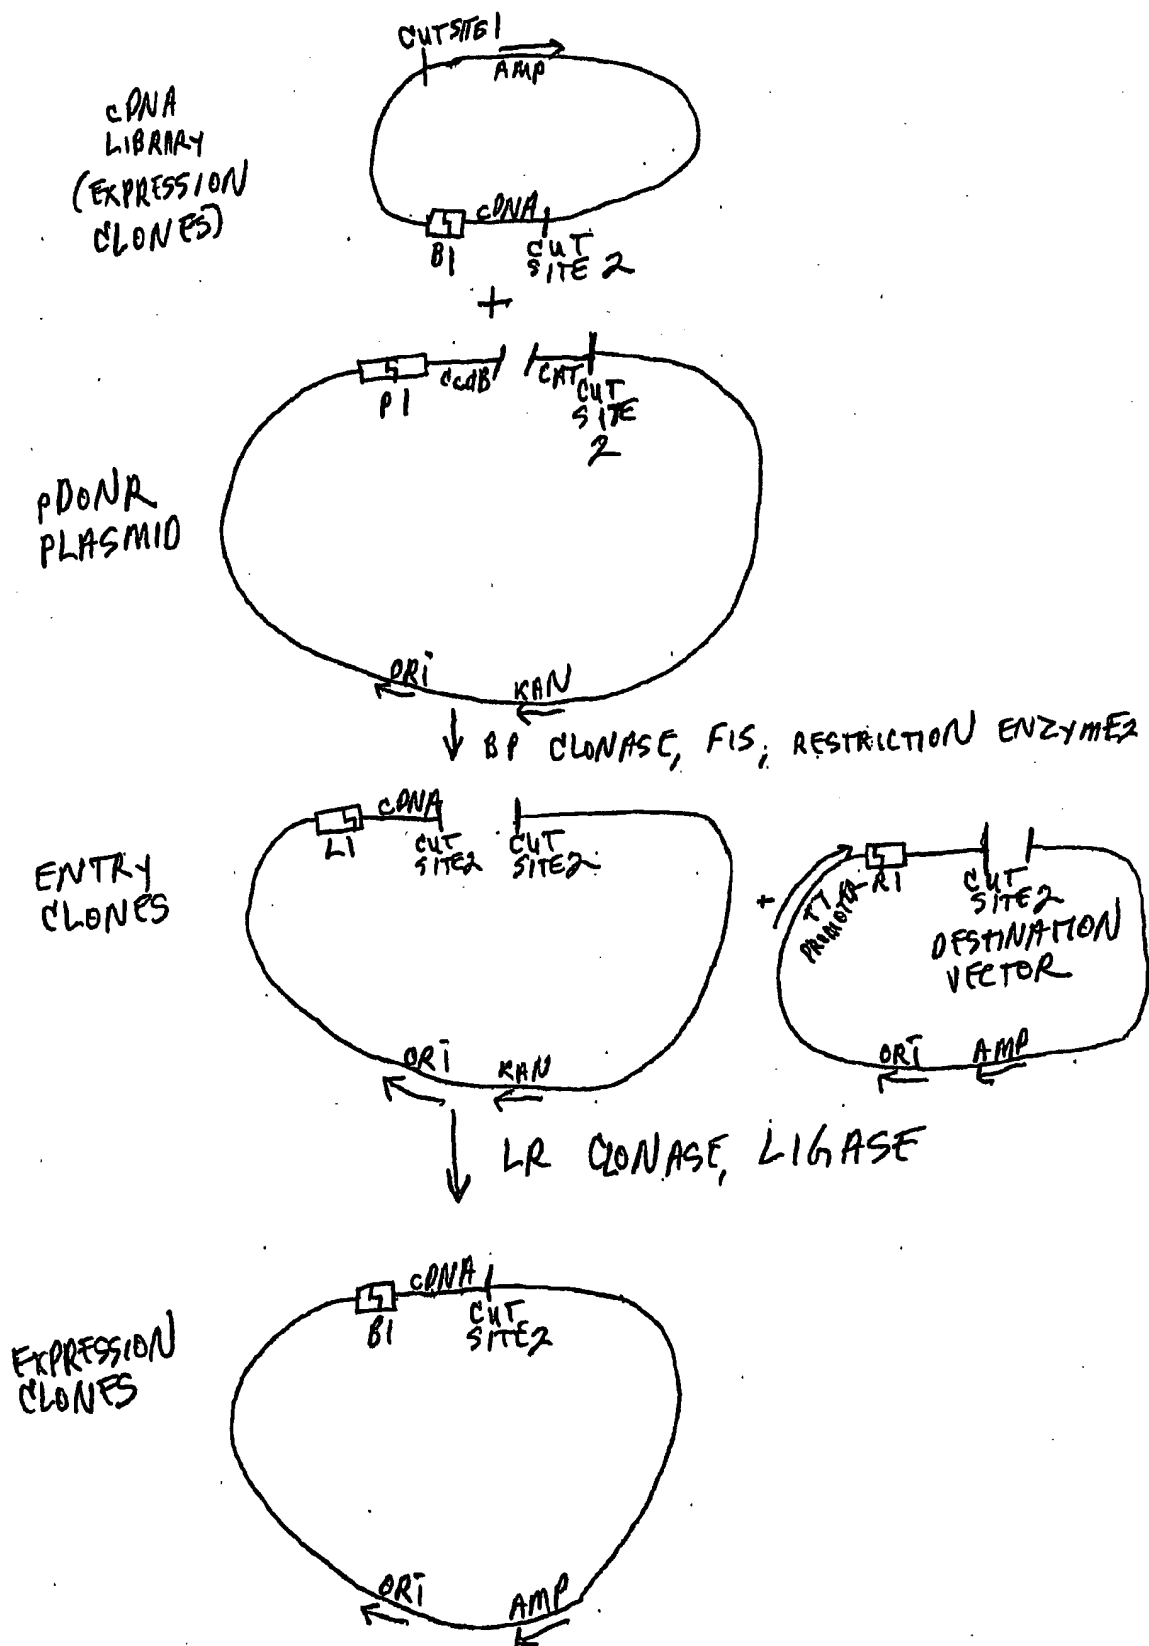 CUT SITE 1
AMP
cDNA
LIBRARY
(EXPRESSION
CLONES)
B1
cDNA
CUT
SITE 2
+
P1
CcdB
CAT
CUT
SITE
2
pDONR
PLASMID
ORI
KAN
BP CLONASE, FIS, RESTRICTION ENZYME2
ENTRY
CLONES
L1
cDNA
CUT
SITE2
CUT
SITE2
+
T7
PROMOTER
R1
CUT
SITE 2
DESTINATION
VECTOR
ORI
KAN
ORI
AMP
LR CLONASE, LIGASE
EXPRESSION
CLONES
B1
cDNA
CUT
SITE2
ORI
AMP